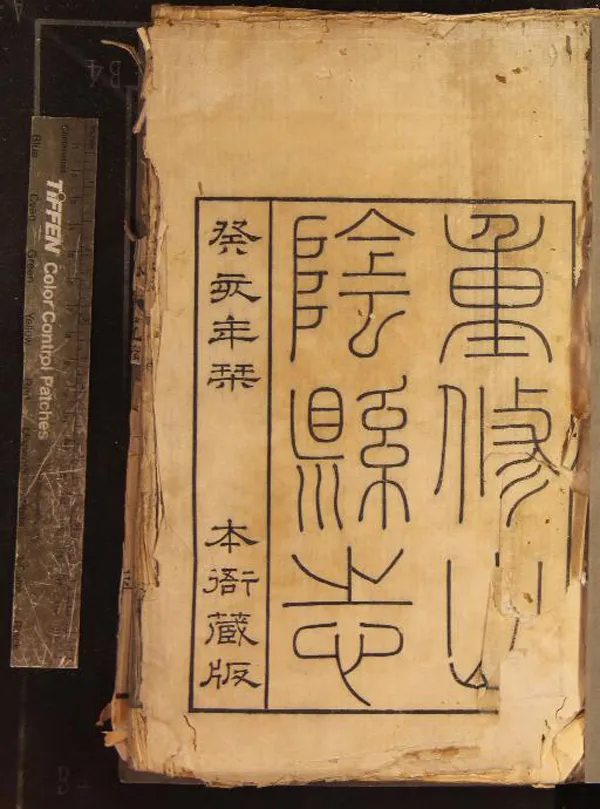 重修山
陰縣志
癸亥年栞
本衙藏版
TIFFEN Color Control Patches
Blue
Cyan
Green
Yellow
B4